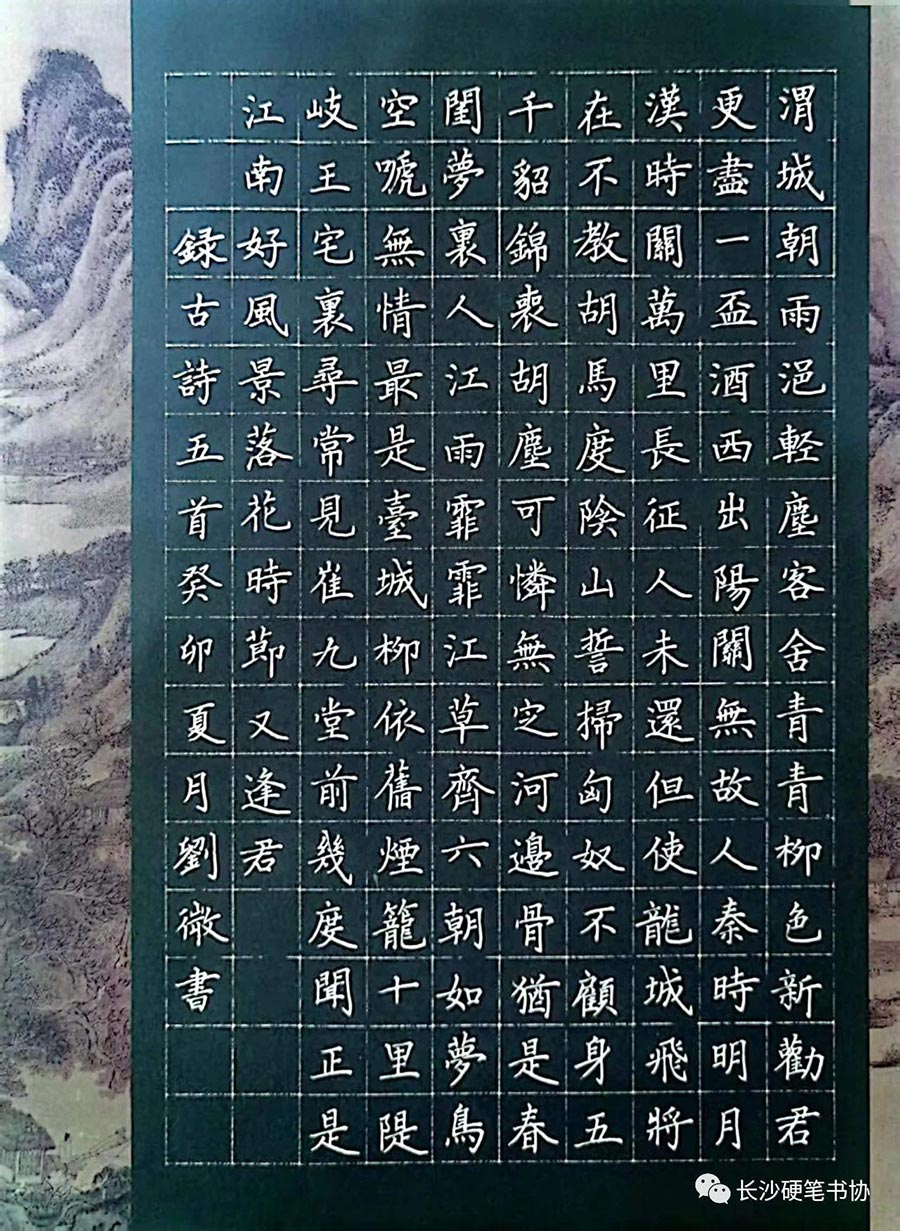 渭城朝雨浥輕塵客舍青青柳色新勸君
更盡一盃酒西出陽關無故人秦時明月
漢時關萬里長征人未還但使龍城飛將
在不教胡馬度陰山誓掃匈奴不顧身五
千貂錦喪胡塵可憐無定河邊骨猶是春
閨夢裏人江雨霏霏江草齊六朝如夢鳥
空嗁無情最是臺城柳依舊煙籠十里隄
岐王宅裏尋常見崔九堂前幾度聞正是
江南好風景落花時節又逢君
録古詩五首癸卯夏月劉微書
长沙硬笔书协